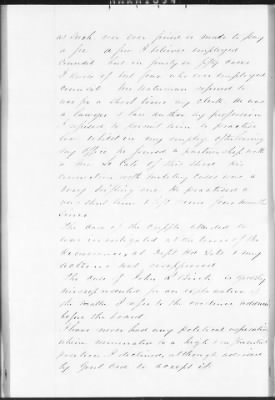 as such was ever joined or made to pay
a fee. A few I believe employed
counsel but in forty or fifty cases
I know of but four who ever employed
counsel. Mr Waterman referred to
was for a short time my clerk. He was
a lawyer & law author by profession
I refused to permit him to practice
law whilst in my employ. After leaving
my office he formed a partnership with
a Mr. La of this street. His
connection with military cases was a
very trifling one. He practised a
very short time & left some four months
since.
The case of the cripple alluded to
was investigated at the time of the
occurrence, at Head Qrs & my
actions not disapproved.
The case of John H. Birch is grossly
misrepresented for an explanation of
the matter I refer to the evidence adduced
before the board.
I have never had any political aspirations
whose nomination to a high & influential
position I declined, although advised
by you to accept it.